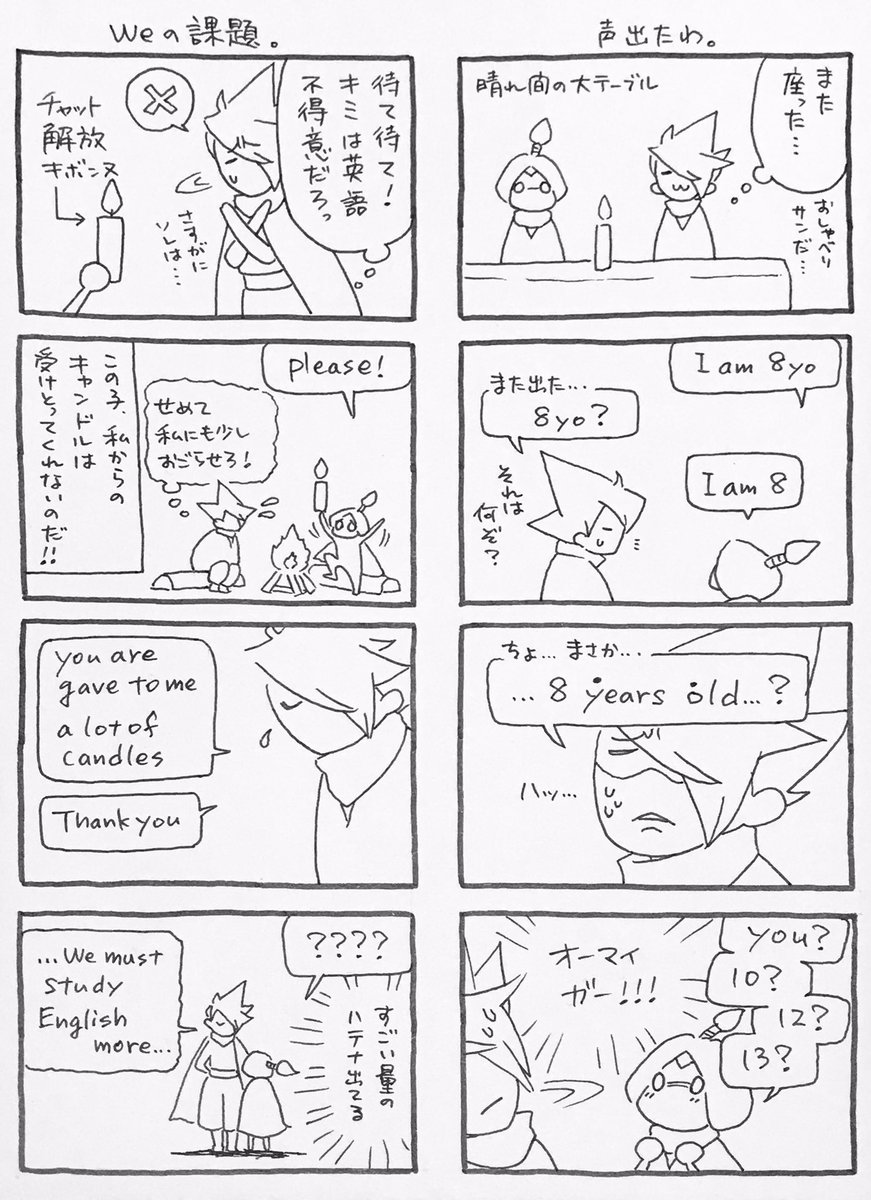 声出たわ。
また
座った…
晴れ間の大テーブル
おしゃべり
サンだ…
I am 8yo
また出た…
8yo?
それは
何ぞ?
I am 8
ちょ… まさか…
…8 years old…?
ハッ…
you?
10?
12?
13?
オーマイ
ガー!!!
Weの課題。
待て待て!
キミは英語
不得意だろっ
チャット
解放
キボンヌ
さすがに
ソレは…
please!
せめて
私にも少し
おごらせろ!
この子、私からの
キャンドルは
受けとってくれないのだ!!
you are
gave to me
a lot of
candles
Thank you
????
…We must
study
English
more…
すごい量の
ハテナ出てる